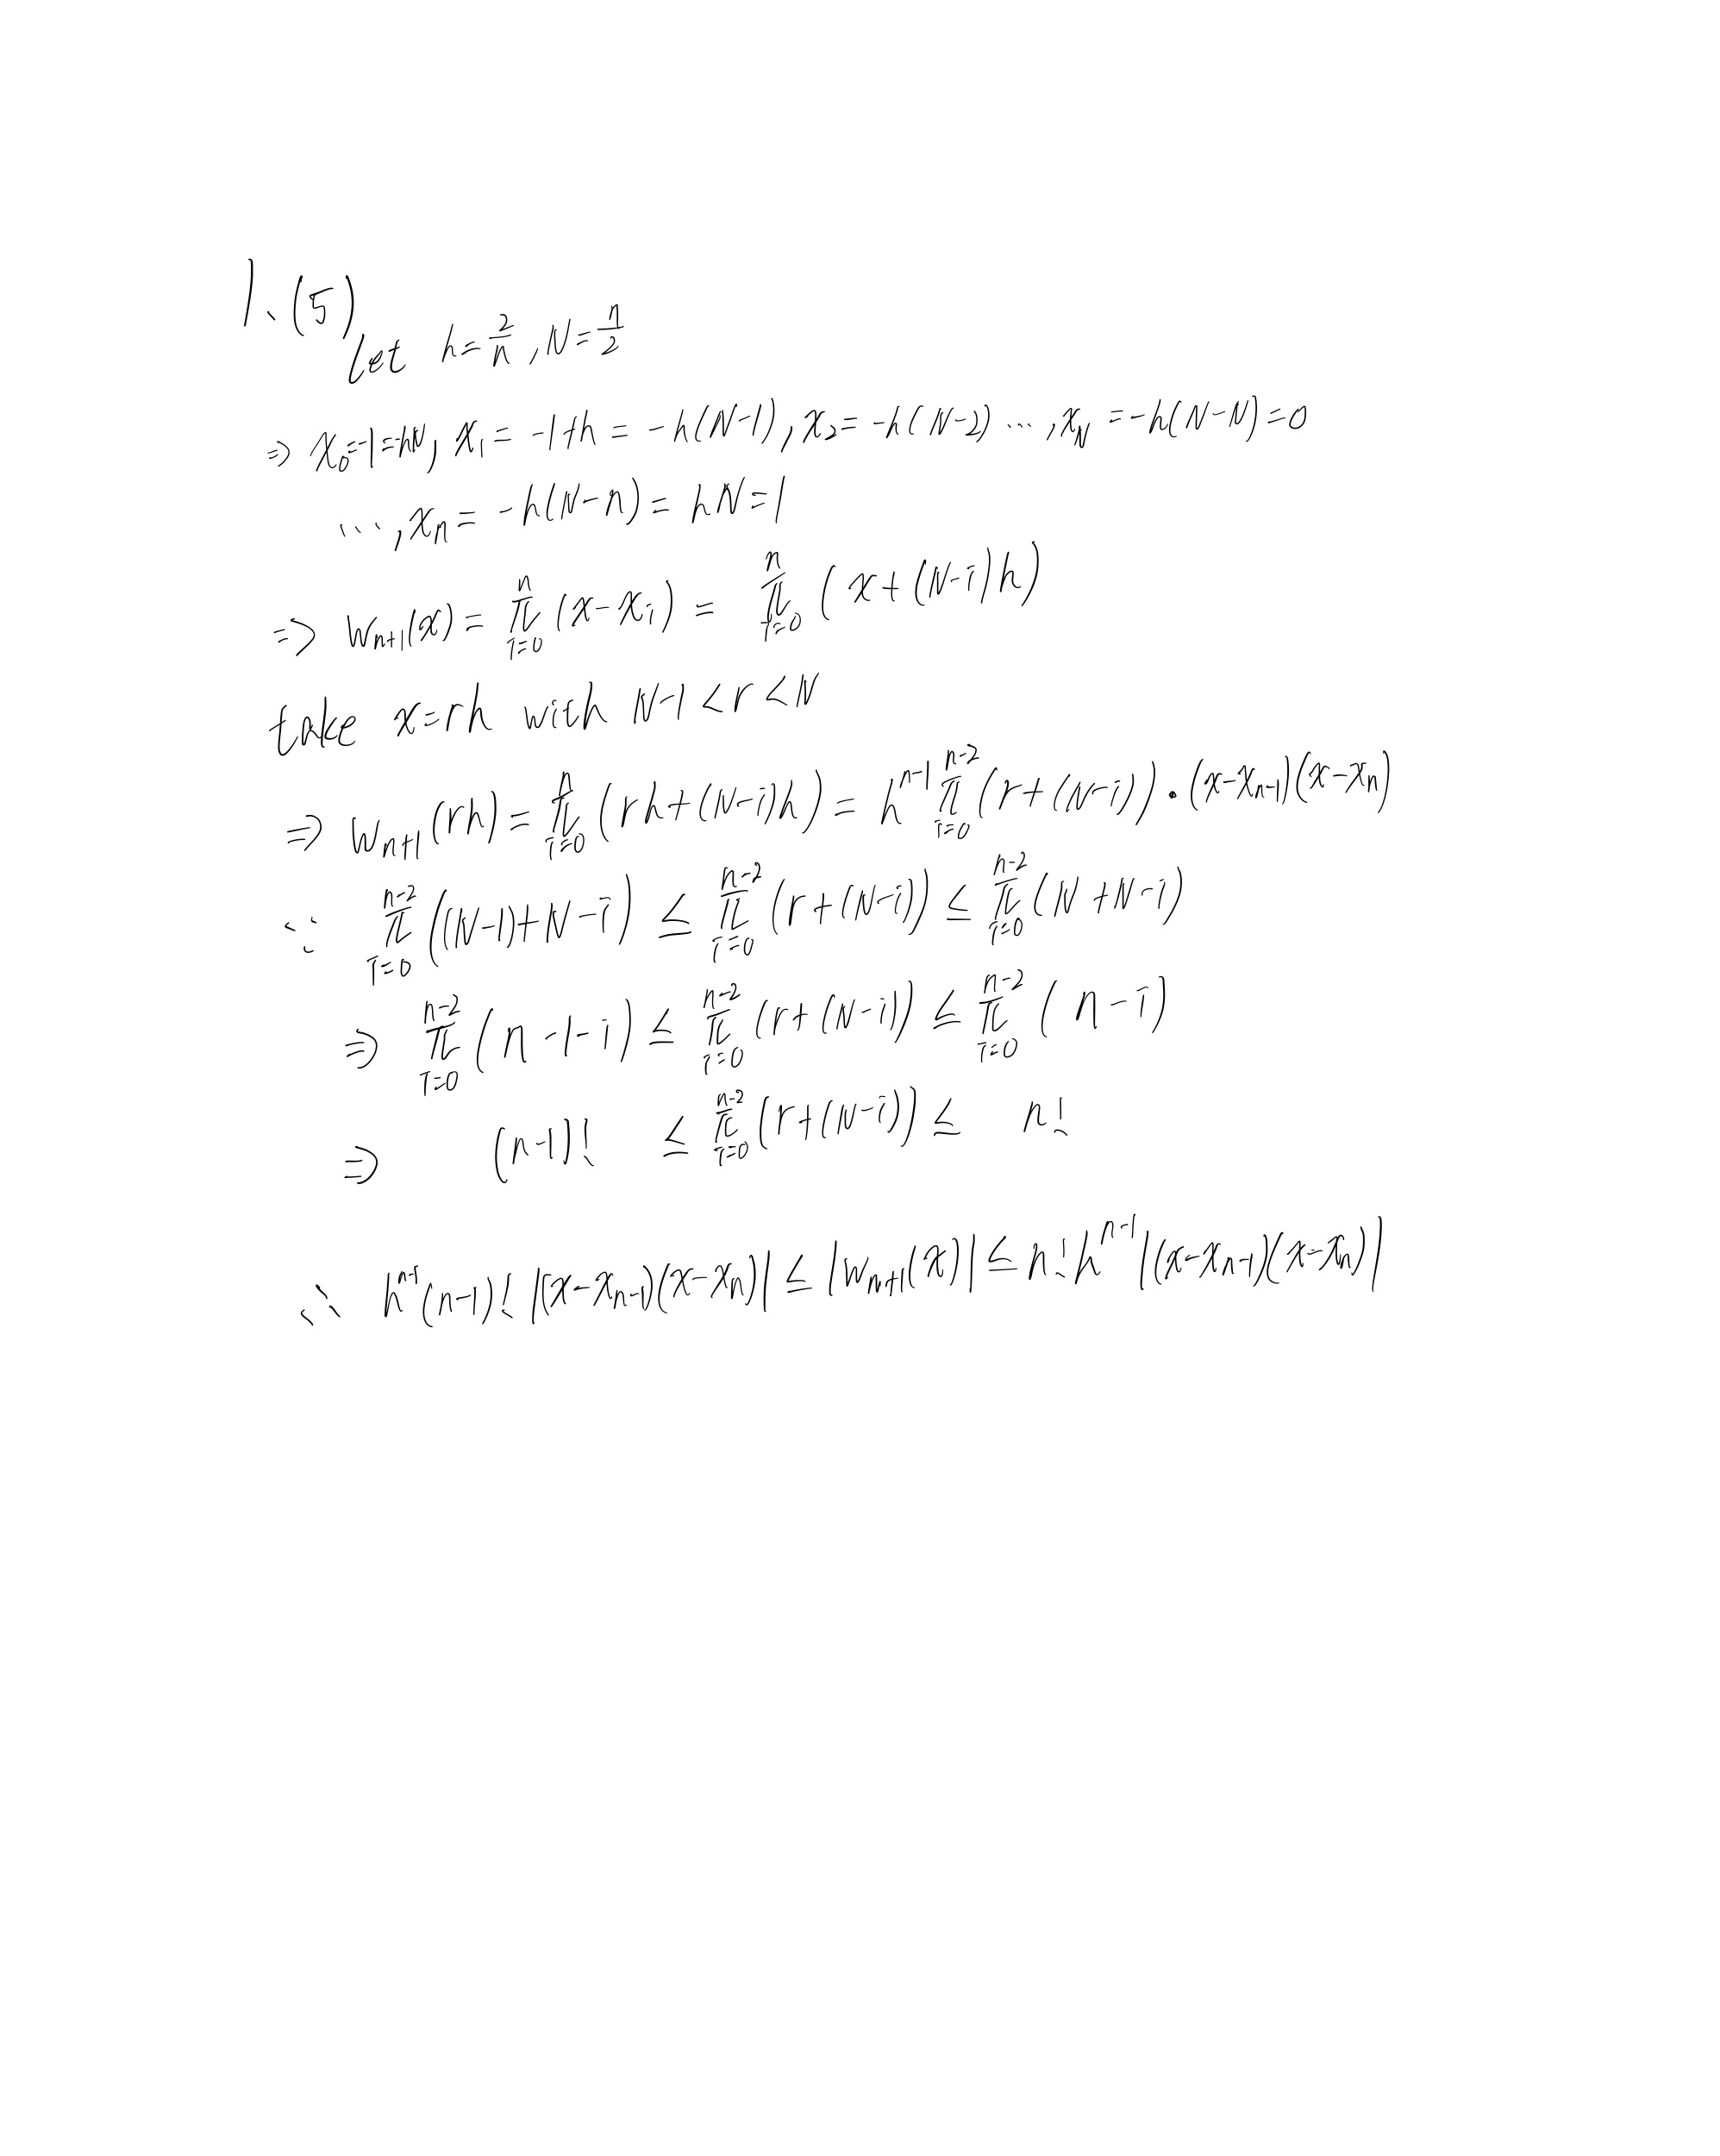 1、(5)
Let h = 2/n , N = n/2
⇒ x₀ = -1 = -hN, x₁ = -1+h = -h(N-1), x₂ = -h(N-2) ⋯ , x_N = -h(N-N) = 0
⋯ , x_n = -h(N-n) = hN = 1
⇒ W_{n+1}(x) = π_{i=0}^{n} (x-x_i) = π_{i=0}^{n} (x+(N-i)h)
take x=rh with N-1 < r < N
⇒ W_{n+1}(rh) = π_{i=0}^{n} (rh+(N-i)h) = h^{n-1} π_{i=0}^{n-2} (r+(N-i)) • (x-x_{n-1})(x-x_n)
∵ π_{i=0}^{n-2} ((N-1)+N-i) ≤ π_{i=0}^{n-2} (r+(N-i)) ≤ π_{i=0}^{n-2} (N+N-i)
⇒ π_{i=0}^{n-2} (n-1-i) ≤ π_{i=0}^{n-2} (r+(N-i)) ≤ π_{i=0}^{n-2} (n-i)
⇒ (n-1)! ≤ π_{i=0}^{n-2} (r+(N-i)) ≤ n!
∴ h^{n-1}(n-1)! |(x-x_{n-1})(x-x_n)| ≤ |W_{n+1}(x)| ≤ n! h^{n-1} |(x-x_{n-1})(x-x_n)|